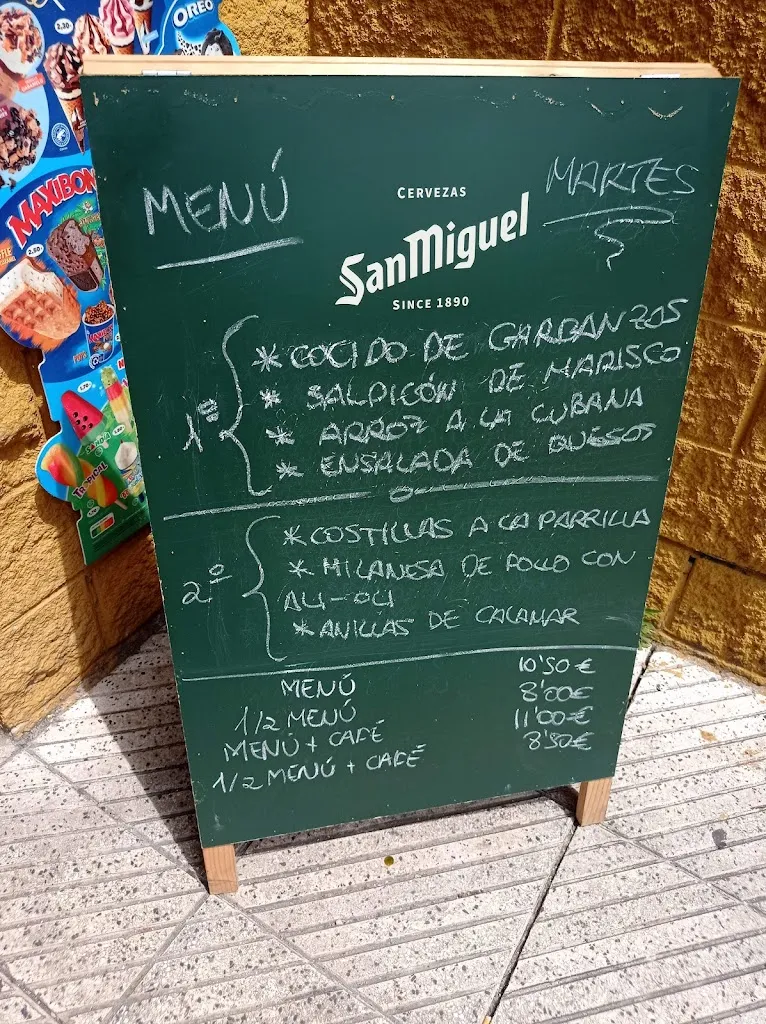 2,30
OREO
MAXIBON
2,60
SANDÍA
TROPICAL
MENÚ
MARTES
CERVEZAS
San Miguel
SINCE 1890
1º
* COCIDO DE GARBANZOS
* SALPICÓN DE MARISCO
* ARROZ A LA CUBANA
* ENSALADA DE QUESOS
2º
* COSTILLAS A LA PARRILLA
* MILANESA DE POLLO CON
ALI-OLI
* ANILLAS DE CALAMAR
MENÚ 10'50€
1/2 MENÚ 8'00€
MENÚ + CAFÉ 11'00€
1/2 MENÚ + CAFÉ 8'50€